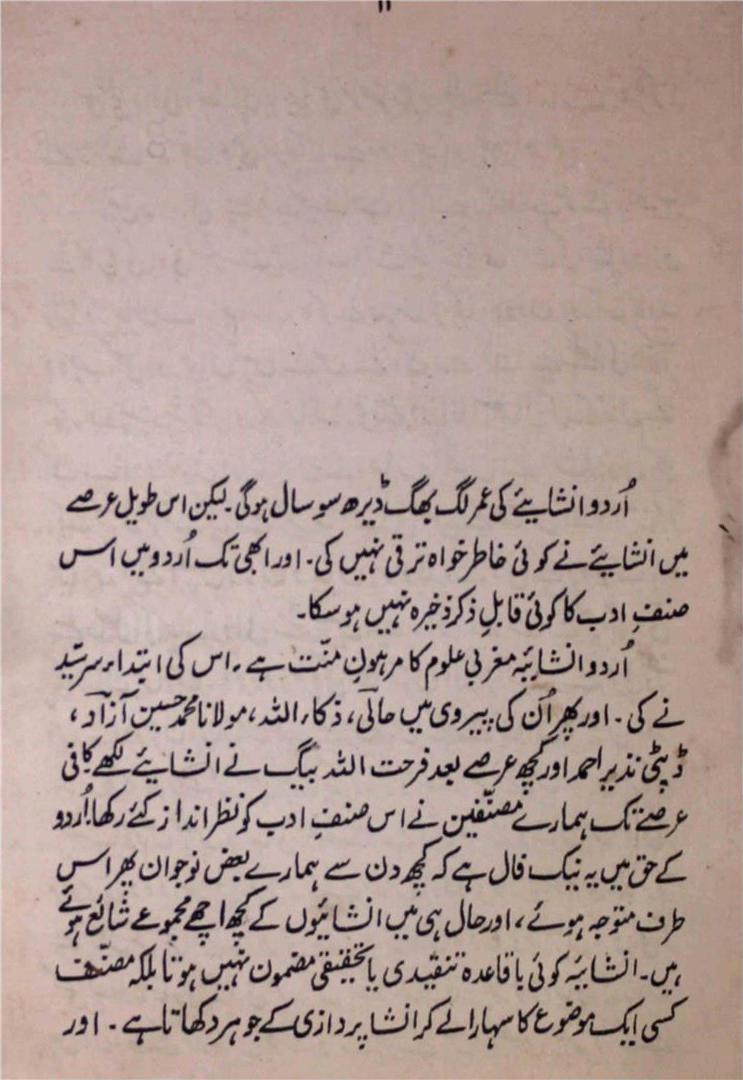 ۱۱
اُردو انشایئے کی عمر لگ بھگ ڈیڑھ سو سال ہوگی۔ لیکن اس طویل عرصے
میں انشایئے نے کوئی خاطر خواہ ترقی نہیں کی۔ اور ابھی تک اُردو میں اس
صنفِ ادب کا کوئی قابلِ ذکر ذخیرہ نہیں ہو سکا۔
اُردو انشایئہ مغربی علوم کا مرہونِ منّت ہے۔ اس کی ابتداء سرسیّد
نے کی۔ اور پھر اُن کی پیروی میں حالیؔ، ذکاء اللہ، مولانا محمد حسین آزادؔ،
ڈپٹی نذیر احمد اور کچھ عرصے بعد فرحت اللہ بیگ نے انشایئے لکھے۔ کافی
عرصے تک ہمارے مصنّفین نے اس صنفِ ادب کو نظر انداز کئے رکھا۔ اُردو
کے حق میں یہ نیک فال ہے کہ کچھ دن سے ہمارے بعض نوجوان پھر اس
طرف متوجہ ہوئے، اور حال ہی میں انشائیوں کے کچھ اچھے مجموعے شائع ہوئے
ہیں۔ انشایئہ کوئی باقاعدہ تنقیدی یا تحقیقی مضمون نہیں ہوتا بلکہ مصنّف
کسی ایک موضوع کا سہارا لے کر انشا پردازی کے جوہر دکھاتا ہے۔ اور